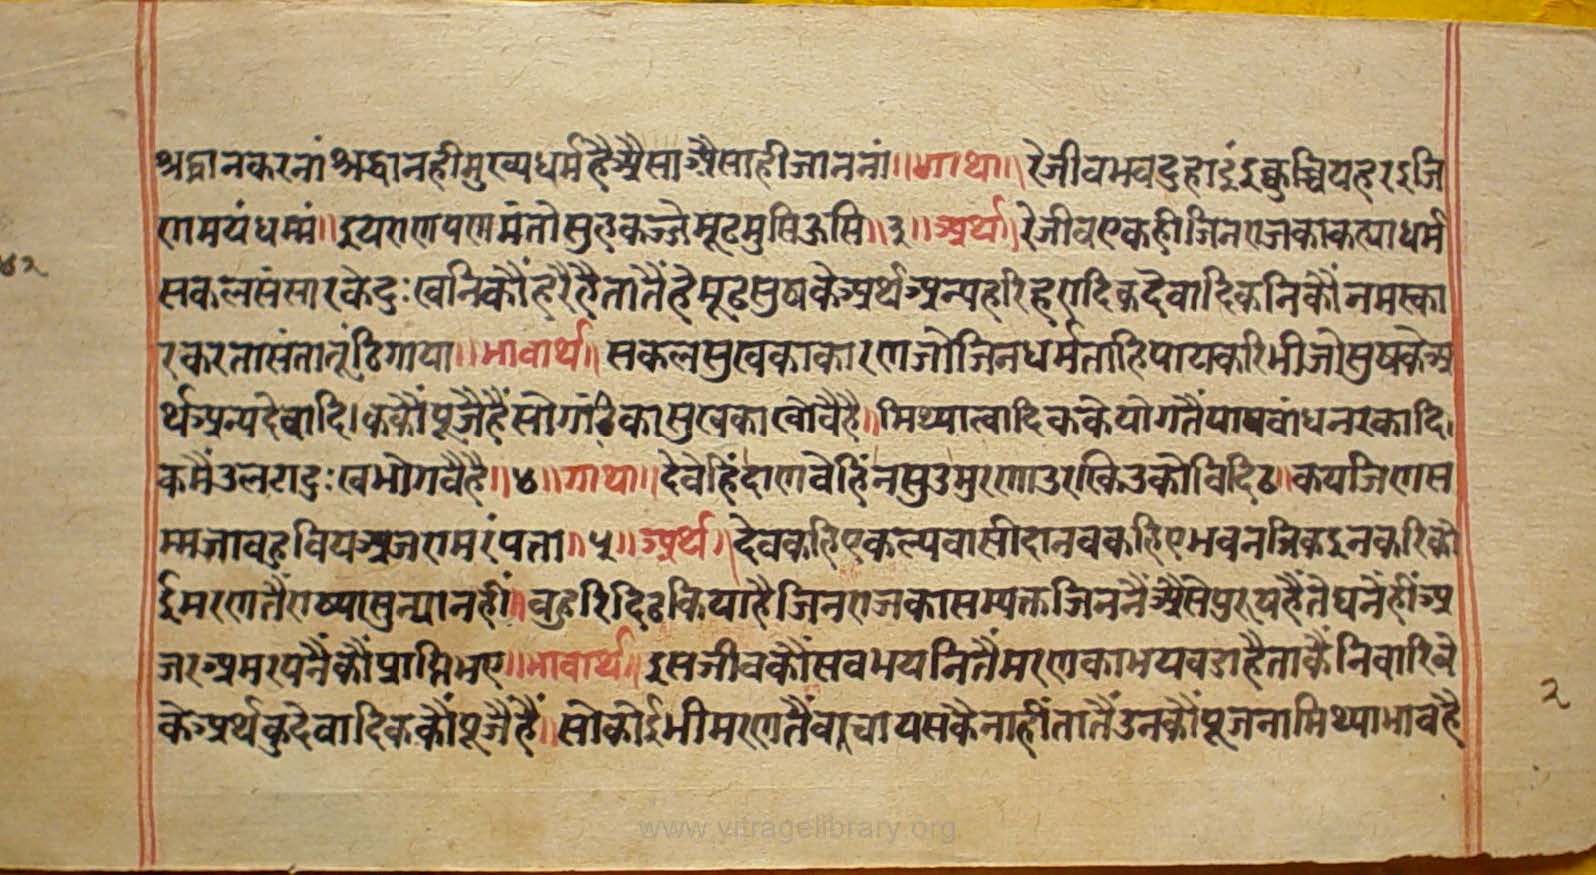 श्रद्धानकरनांश्रद्धानहीमुख्यधर्महैअैसाअैसाहीजाननां॥गाथा॥रेजीवभवदुहाइंइक्कुच्चियहरइजि
णमयंधम्मं॥इयराणपणमंतोसुहकज्जेमूढमुसिऊसि॥३॥अर्थ॥रेजीवएकहीजिनराजकाकह्याधर्म
सकलसंसारकेदुःखनिकौंहरैहैतातैंहेमूढसुषकेअर्थअन्यहरिहरादिकदेवादिकनिकौंनमस्का
रकरतासंतातूंठिगाया॥भावार्थ॥सकलसुखकाकारणजोजिनधर्मताहिपायकरिभीजोसुषकेअ
र्थअन्यदेवादि।ककौंपूजैहैंसोगांठिकासुखकाखोवैहै॥मिथ्यात्वादिककेयोगतैंपापबांधनरकादि।
कमैंउलटादुःखभोगवैहै॥४॥गाथा॥देवेहिंदाणवेहिंनसुउमुरणाउरखिउकोविदिठ॥कयजिणस
म्मजावहुवियअजरामरंपत्ता॥५॥अर्थ॥देवकहिएकल्पवासीदानवकहिएभवनत्रिकइनकरिको
ईमरणतैंराष्यासुन्यानहीं॥बहुरिदिढकियाहैजिनराजकासम्यक्तजिननैंअैसेपुरषहैंतेघनेंहींअ
जरअमरपनैंकौंप्राप्तिभए॥भावार्थ॥इसजीवकौंसबभयनितैंमरणकाभयबडाहैताकैंनिवारिवे
केअर्थकुदेवादिककौंपूजैहैं॥सोकोईभीमरणतैंबचायसकैनाहींतातैंउनकौंपूजनामिथ्याभावहै
२
www.vitragelibrary.org